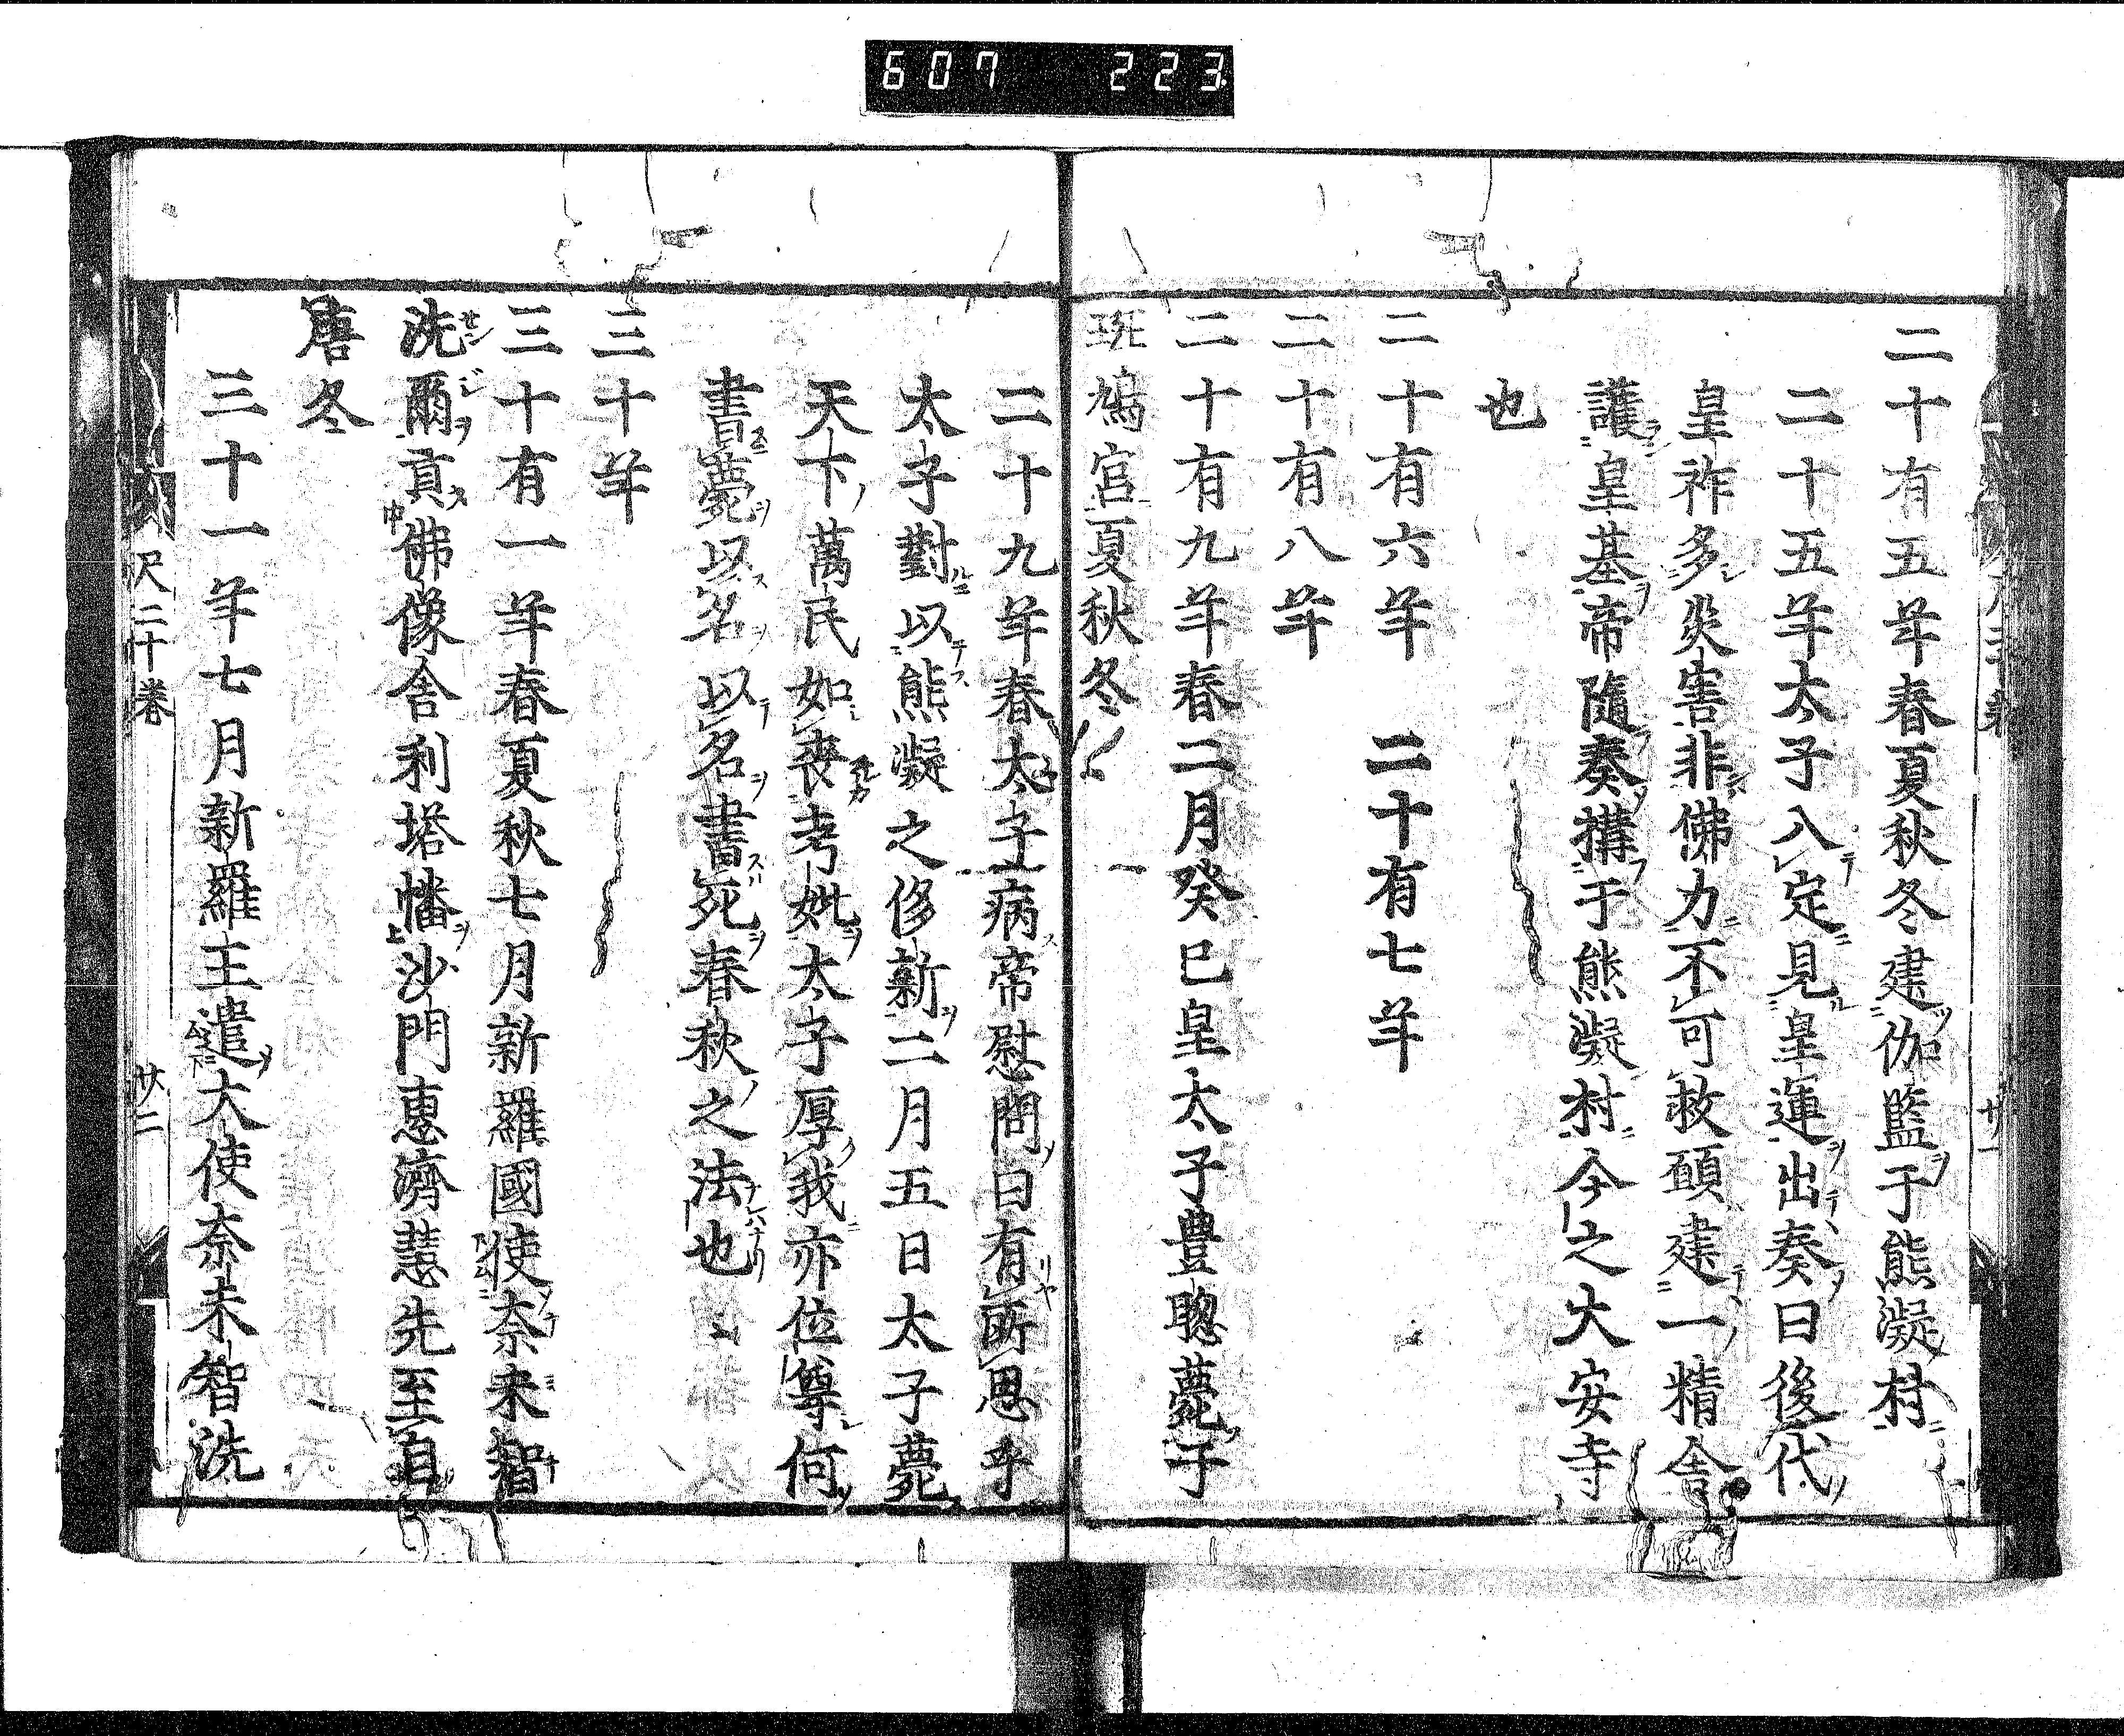 607 223
二十有五年春夏秋冬建伽藍于熊凝村
二十五年太子入定見皇運出奏曰後代
皇祚多災害非佛力不可救願建一精舎
護皇基帝隨奏搆于熊凝村今之大安寺
也
二十有六年 二十有七年
二十有八年
二十有九年春二月癸巳皇太子豊聰薨于
斑鳩宮夏秋冬
二十九年春太子病帝慰問曰有所思乎
太子對以熊凝之修新二月五日太子薨
天下萬民如喪考妣太子厚我亦位尊何
書薨以名以名書死春秋之法也
三十年
三十有一年春夏秋七月新羅國使奈末智
洗爾貢佛像舎利塔幡沙門惠濟慧先至自
唐冬
三十一年七月新羅王遣大使奈末智洗
尺二十巻 廿二